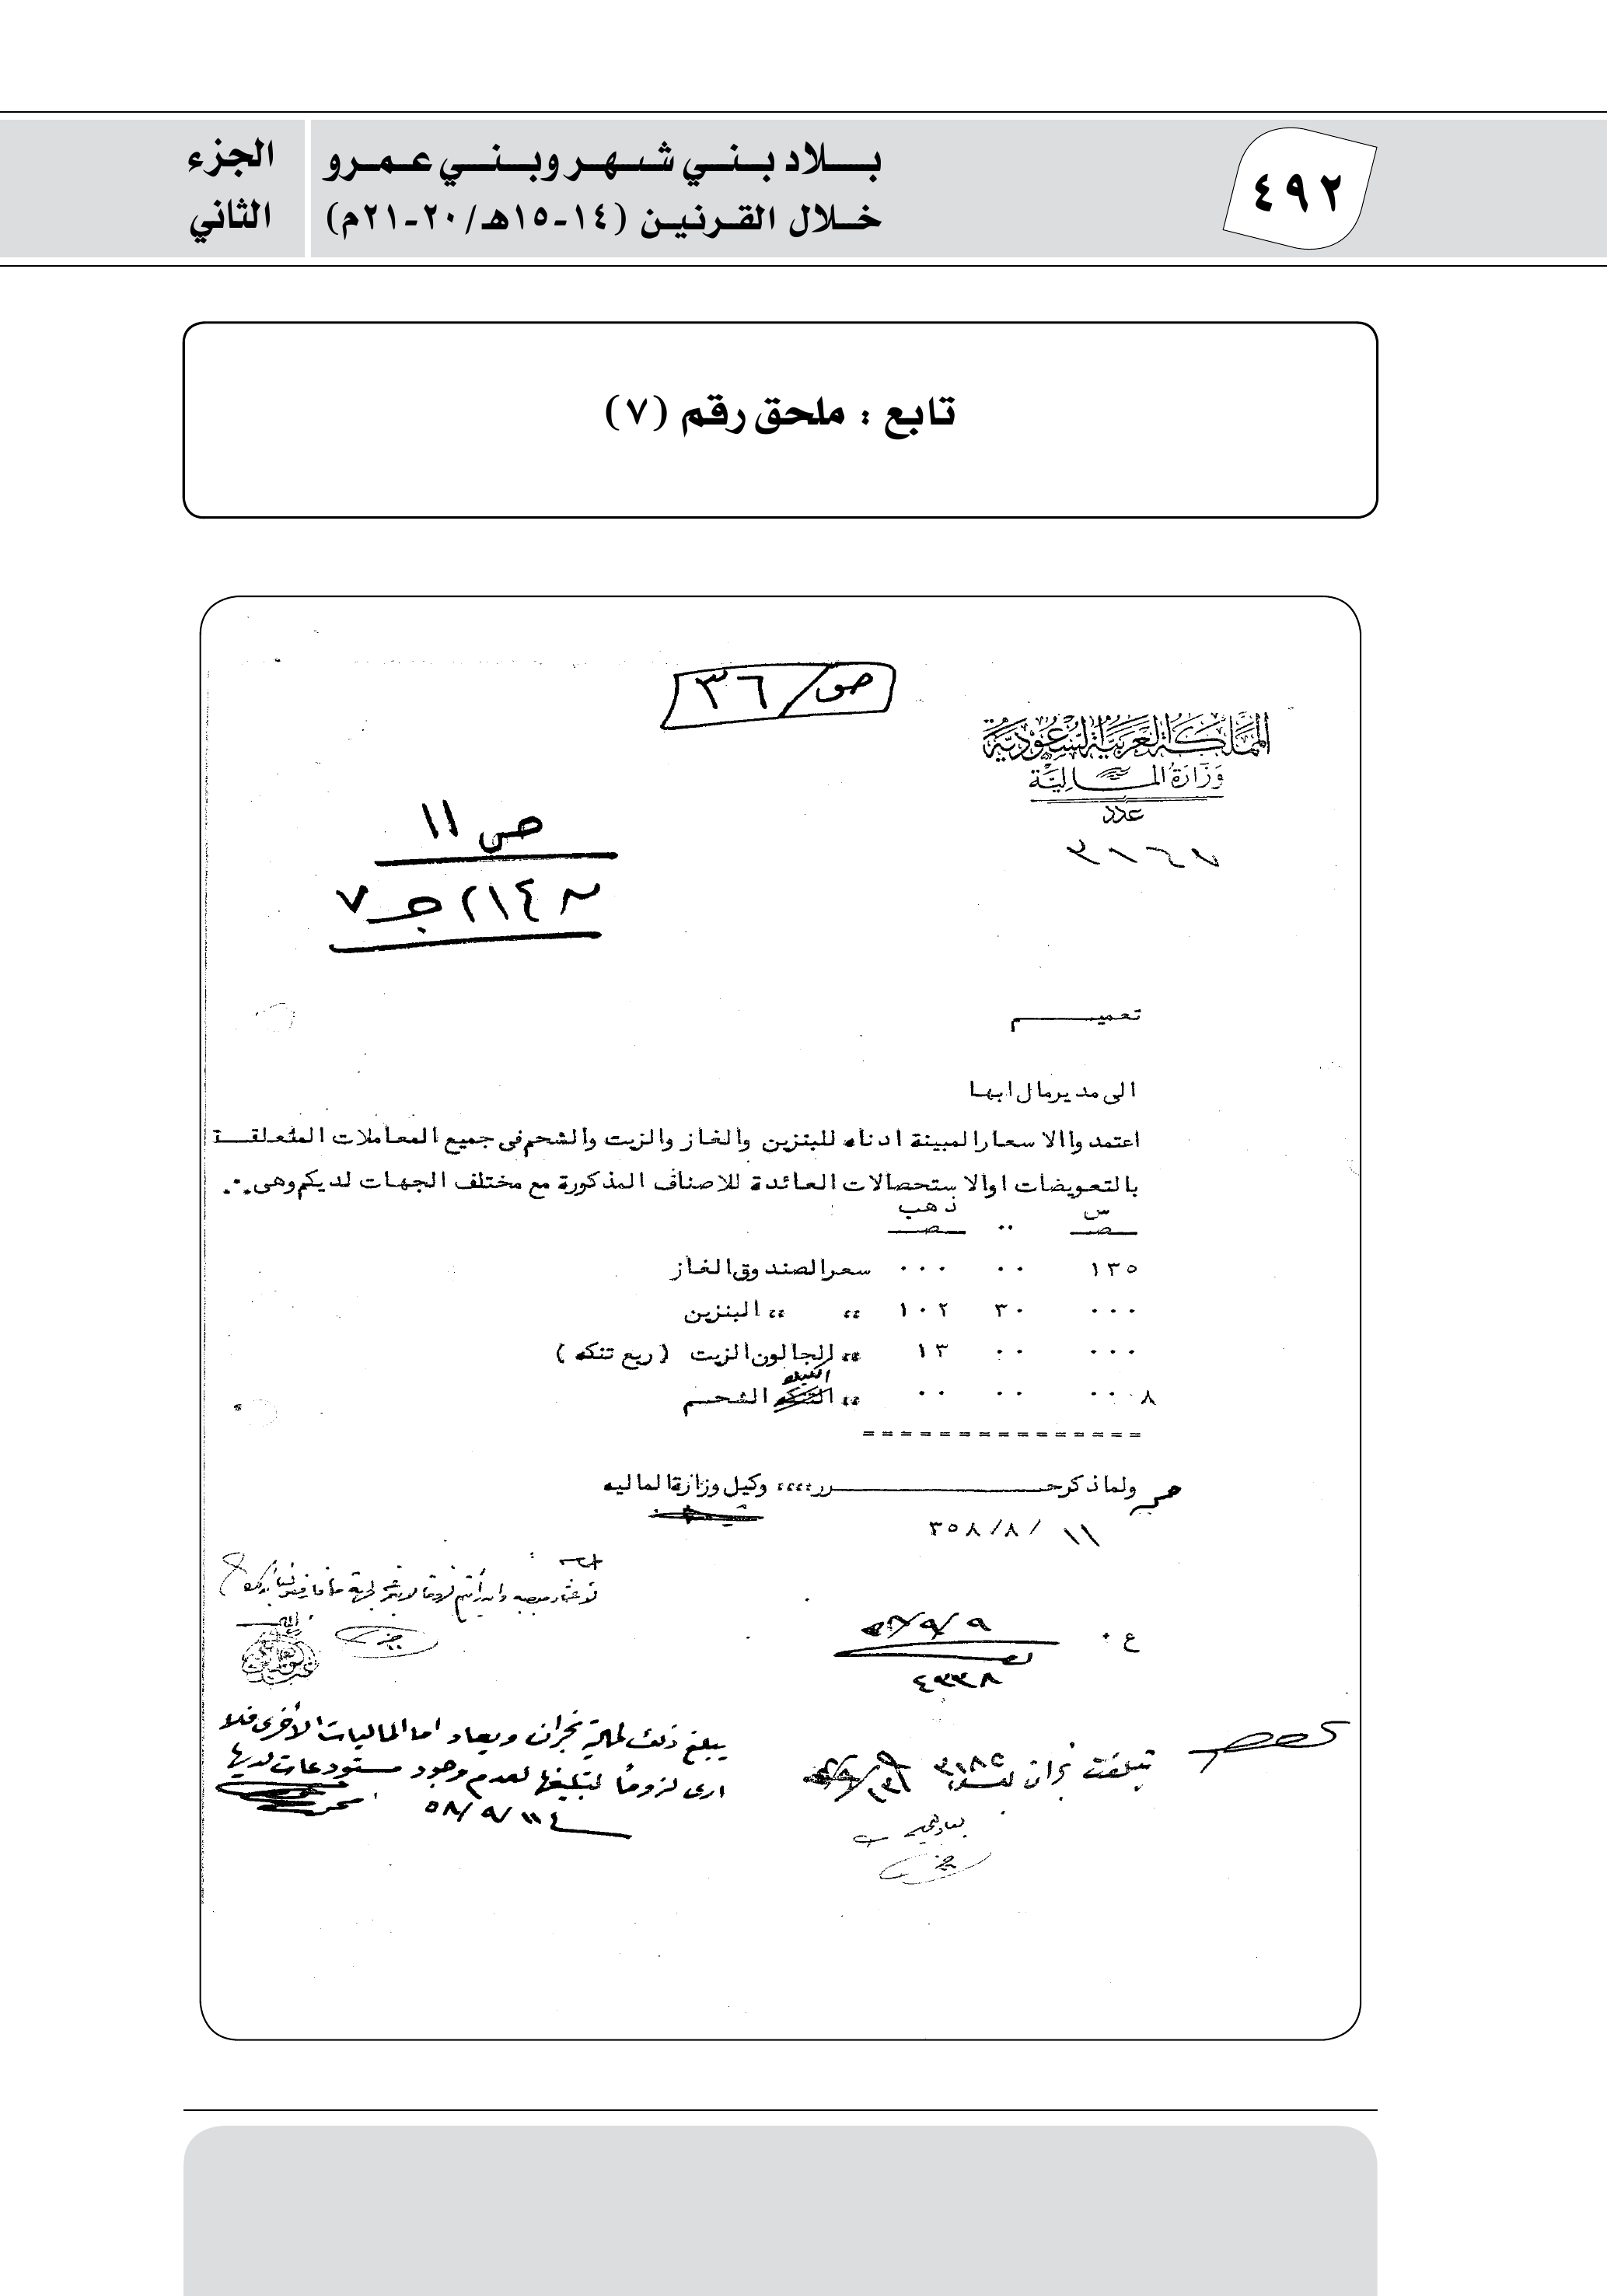 ٤٩٢
بــلاد بـنـي شـهـر وبـنـي عـمـرو
خـلال القـرنـيـن (١٤-١٥هـ/٢٠-٢١م)
الجزء
الثاني
تابع : ملحق رقم (٧)
ص/٣٦
المملكة العربية السعودية
وزارة المالية
عدد
ص ١١
٢١٤ جـ ٧
تعميـــــم
الى مدير مال ابها
اعتمدوا الاسعار المبينة ادناه للبنزين والغاز والزيت والشحم فى جميع المعاملات المتعلقـــة
بالتعويضات اوالاستحصالات العائدة للاصناف المذكورة مع مختلف الجهات لديكم وهى ٠٠٠
س ذهب
صـ ٠٠ صـ
١٣٥ ٠٠ ٠٠٠ سعر الصندوق الغاز
٠٠٠ ٣٠ ١٠٢ ،، ،، البنزين
٠٠٠ ٠٠ ١٣ ،، الجالون الزيت ( ربع تنكه )
٨ ٠٠٠ ٠٠ ٠٠ ،، الشحــم
===============
ولماذكر حــــــــــرر ،،،، وكيل وزارة الماليه
١١ /٨/ ٣٥٨
ع ٠
٩/٩/
٤٣٣٨
يبلغ ذلك لمالية نجران ويعاد اما الماليات الأخرى فلا
ارى لزوماً لتبليغها لعدم وجود مستودعات لديها
٥٨/٩/
تبلغت نجران